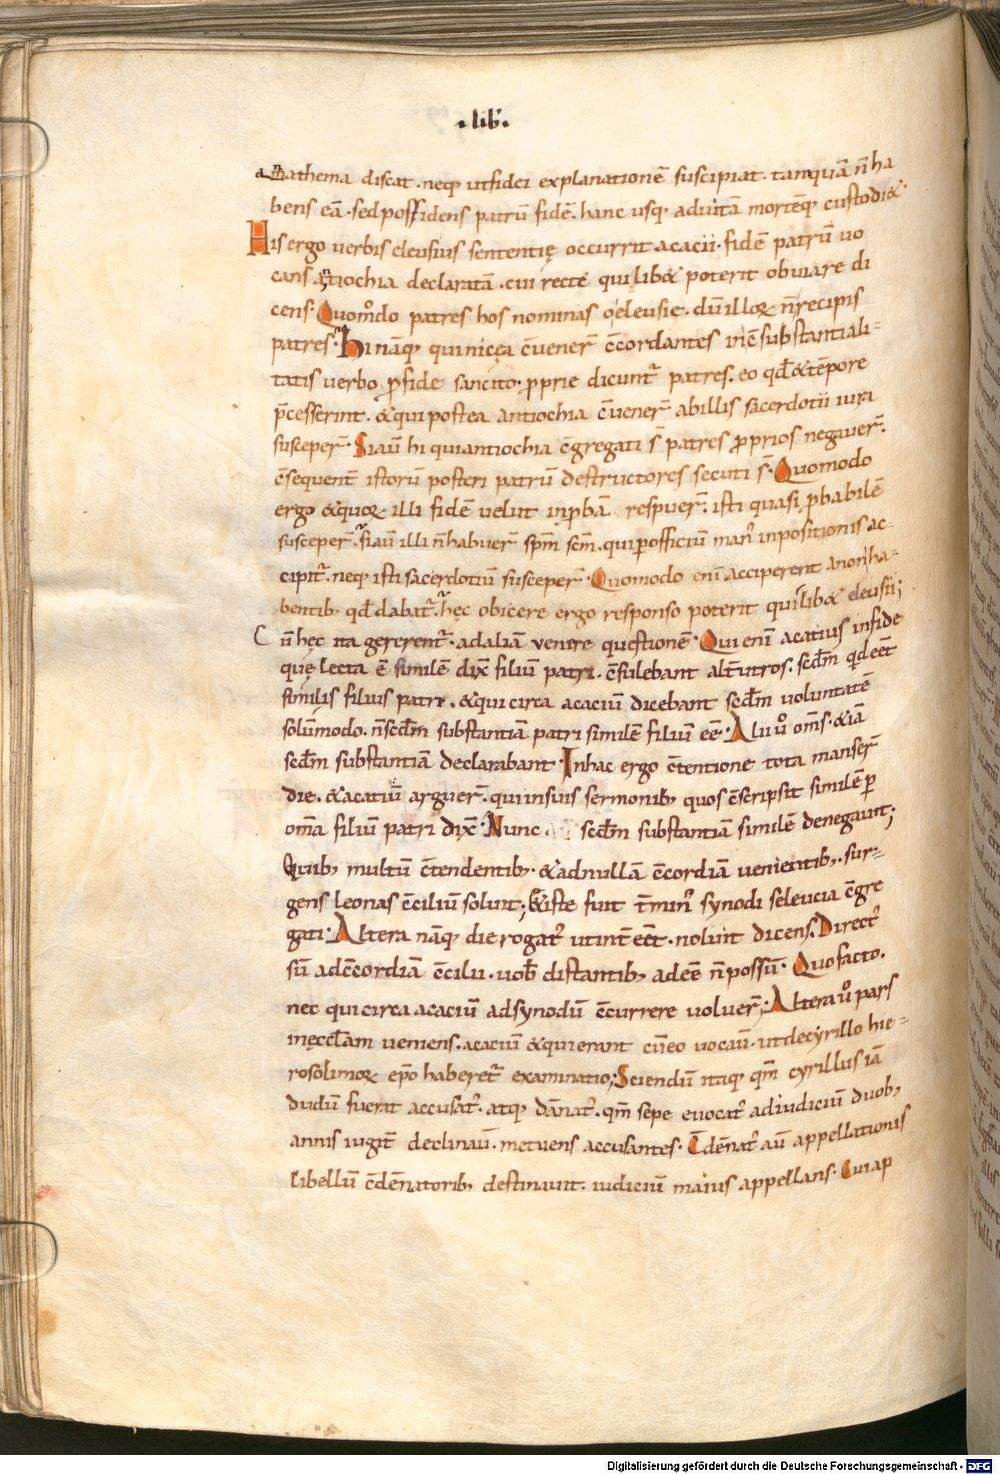 .lib̅.
anathema discat . neq; ut fidei explanationē suscipiat . tamquā n̄ ha
bens eā . sed possidens patrū fidē . hanc usq; ad uitā mortēq; custodi&.
His ergo uerbis eleusius sententię occurrit acacii . fidē patrū uo
cans antiochia declaratā . cui recte quilib& poterit obuiare di
cens . Quom̊do patres hos nominas o eleusię . dū illoꝝ n̄ recipis
patres . Hi nāq; qui nicęa c̄uener̄ c̄cordantes in c̄substantiali-
tatis uerbo ꝓ fide sancito . ꝓprie dicunt̄ patres . eo qđ & tēpore
p̄cesserint . & qui postea antiochia c̄uener̄ ab illis sacerdotii iura
susceper̄ . Si aū hi qui antiochia c̄gregati s̄ patres ꝓprios negauer̄ .
c̄sequent̄ istorū posteri patrū destructores secuti s̄ . Quomodo
ergo & quoꝝ illi fidē uelut inꝓbā respuer̄ . isti quasi ꝓbabilē
susceper̄ . Si aū illi n̄ habuer̄ sp̄m sc̄m . qui ꝑ officiū man' inpositionis ac-
cipit̄ . neq; isti sacerdotiū susceper̄ . Quomodo eni acciperent a non ha-
bentib; qđ dabat̄ . hęc obicere ergo responso poterit quilib& eleusii;
Cū hęc ita gererent̄ . ad aliā uenere questionē . Qui eni acatius in fide
quę lecta ē similē dix̄ filiū patri . c̄sulebant alt̄utros . scd̄m qid eēt
similis filius patri . & qui circa acaciū dicebant scd̄m uoluntatē
solūmodo . n̄ scd̄m substantiā patri similē filiū eē . Alii ů om̄s . & iā
scd̄m substantiā declarabant . In hac ergo c̄tentione tota manser̄
die . & acatiū arguer̄ . qui in suis sermonib; quos c̄scripsit similē ꝑ
om̄a filiū patri dix̄ . Nunc . scd̄m substantiā similē denegaunt;
Quib; multū c̄tendentib; . & ad nullā c̄cordiā uenientib; . sur-
gens leonas c̄ciliū soluit; & iste fuit t̄min' synodi seleucia c̄gre
gati . Altera nāq; die rogat' ut int̄ eēt . noluit dicens . Direct'
sū ad c̄cordiā c̄cilii . uob̄ distantib; adeē n̄ possū . Quo facto .
nec qui circa acaciū ad synodū c̄currere uoluer̄; Altera ů pars
in ęccl̄am ueniens . acaciū & qui erant cū eo uocau̅ . ut de cyrillo hie-
rosolimoꝝ ep̄o haberet̄ examinatio; Sciendū itaq; qm̄ cyrillus iā
dudū fuerit accusat' . atq; dānat' . qm̄ sepe euocat' ad iudiciū duob;
annis iugit̄ declinau̅ . metuens accusantes . C̄dēnat' aū appellationis
libellū c̄dēnatorib; destinauit . iudiciū maius appellans . Cui ap
Digitalisierung gefördert durch die Deutsche Forschungsgemeinschaft - DFG